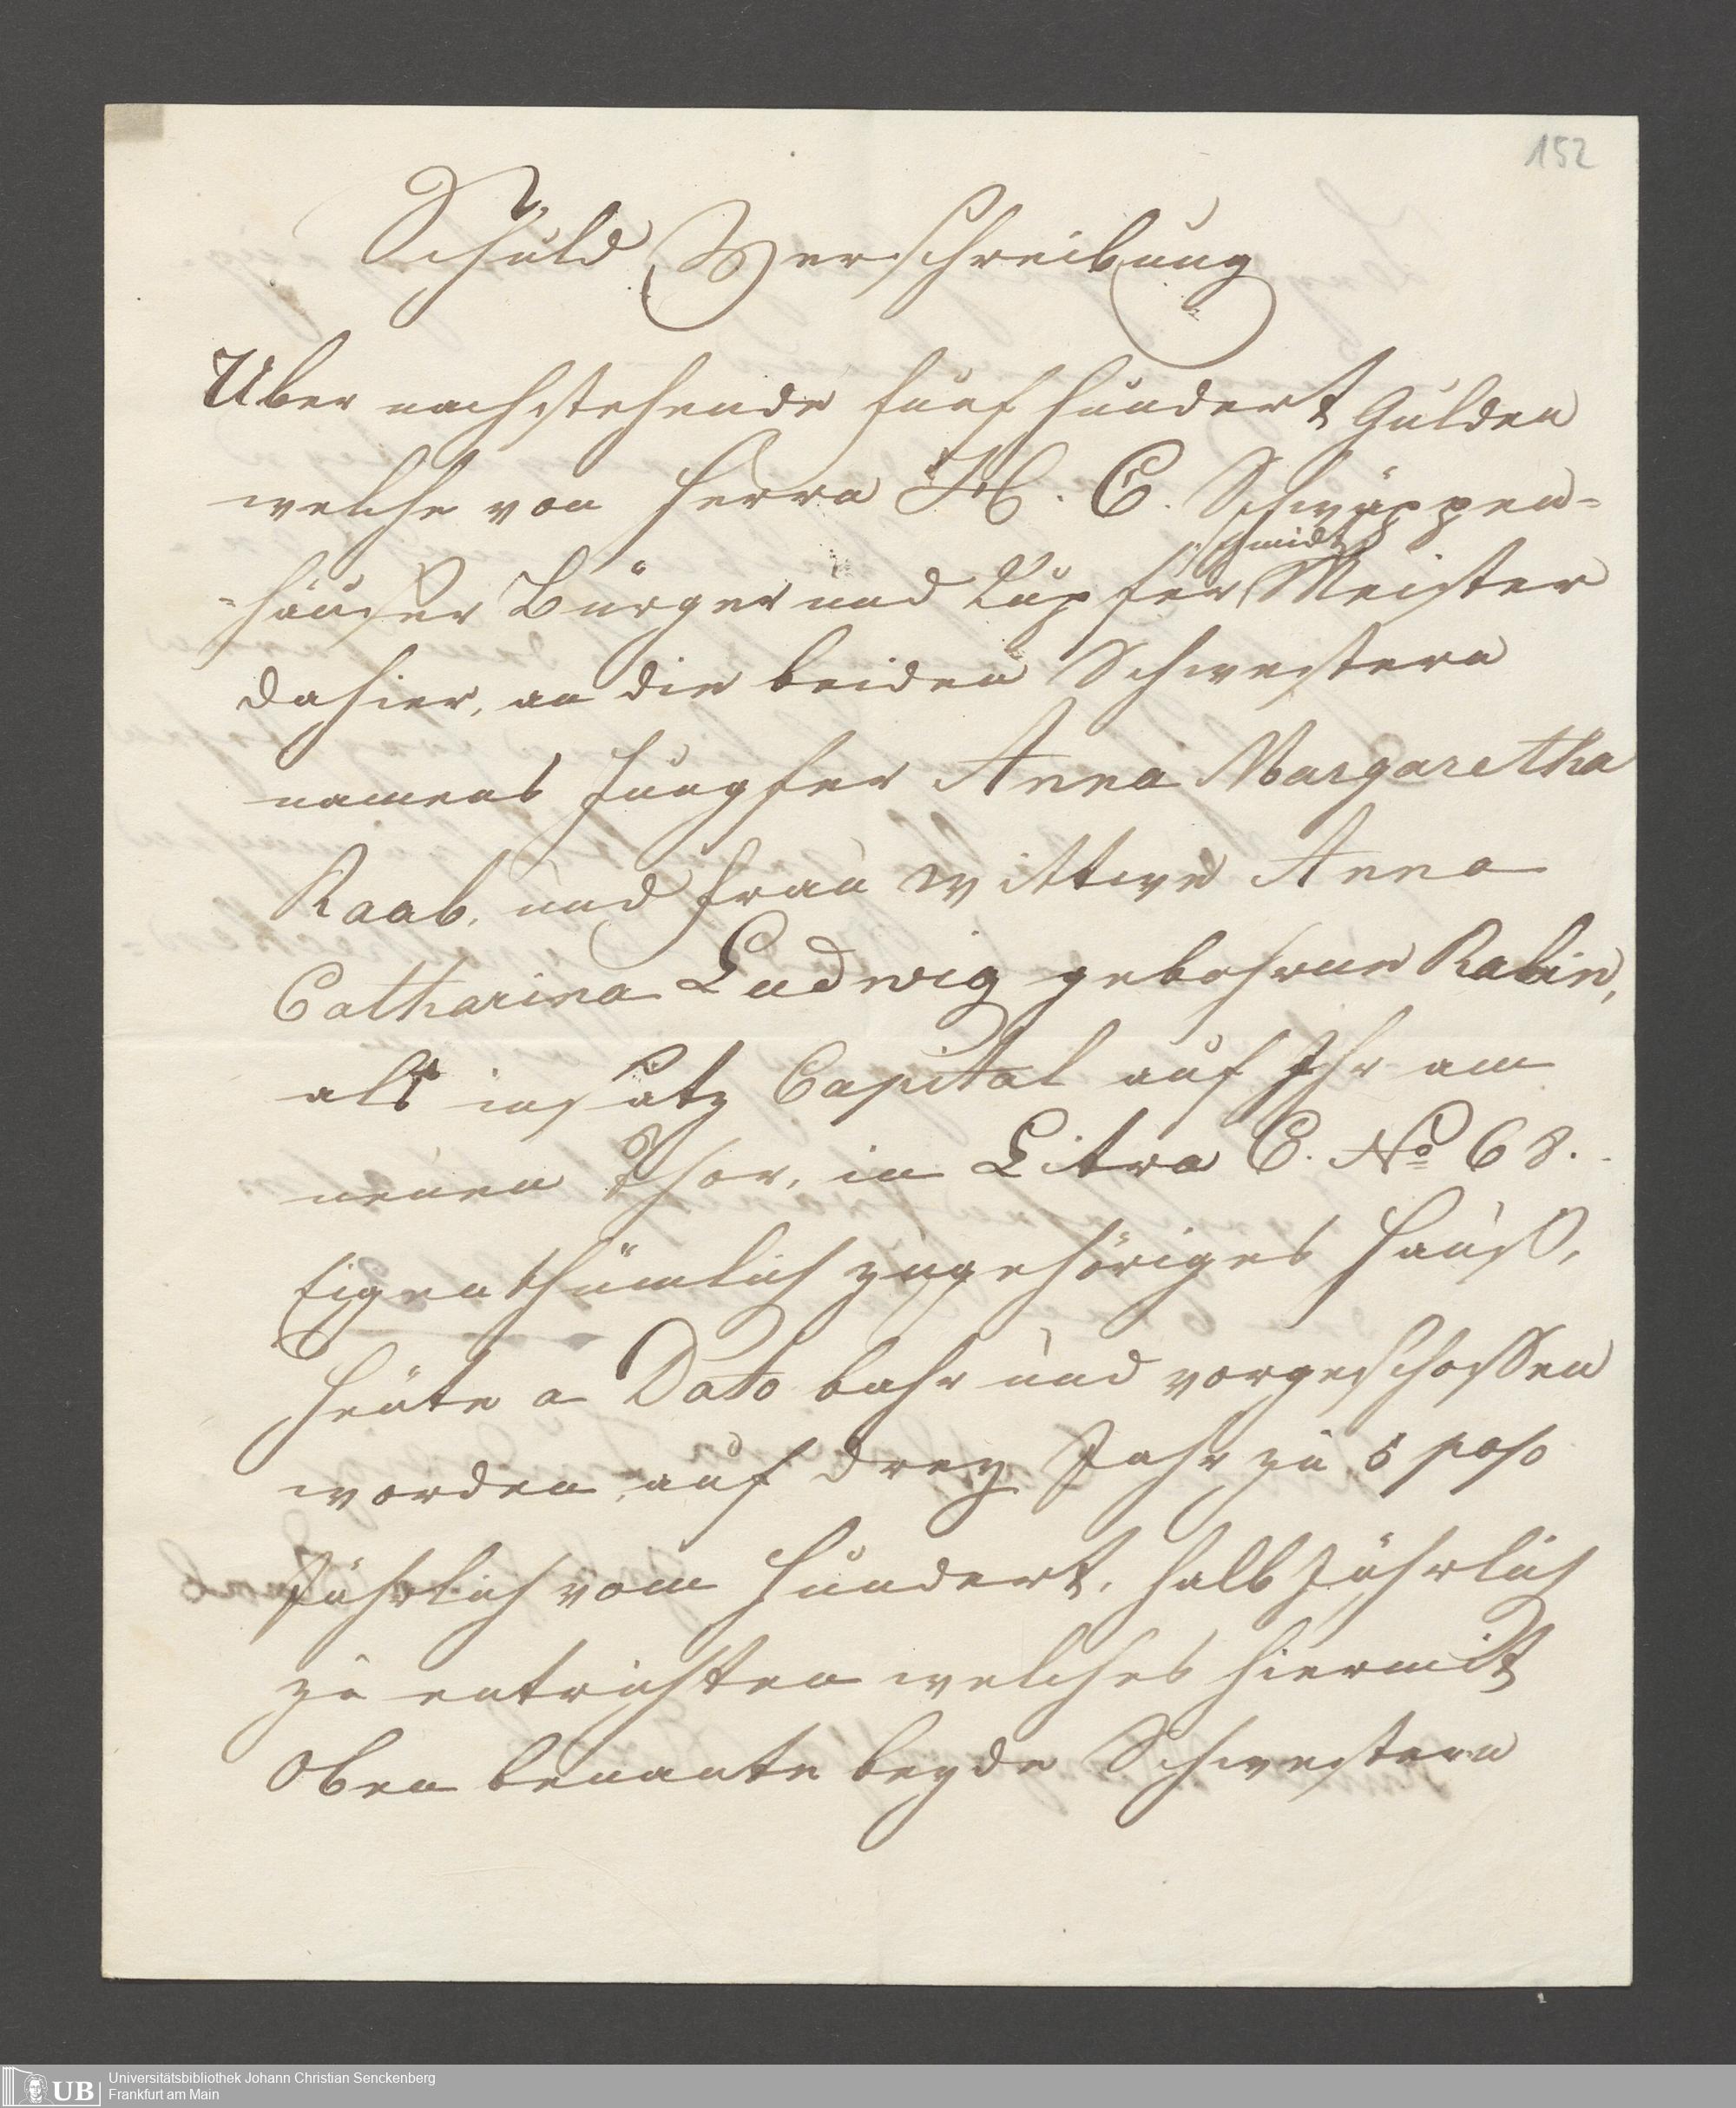 152
Schuld Verschreibung
Über nachstehende fünf hundert Gulden
welche von Herrn H. C. Schwäppen=
=häuser Bürger und Kupferschmidt Meister
dahier, an die beiden Schwestern
namens Jungfer Anna Margaretha
Raab. und Frau Wittwe Anna
Catharina Ludwig gebohrne Rabin,
als insatz Capital auf Ihr am
neuen Thor, in Litra C. No 68.
Eigenthümlich zugehöriges Hauß,
Heute a Dato bahr und vorgeschossen
worden, auf drey Jahr zu 5 pco
Jährlich vom Hundert, halb Jährlich
zu entrichten welches hiermit
Oben benante beyde Schwestern
UB
Universitätsbibliothek Johann Christian Senckenberg
Frankfurt am Main